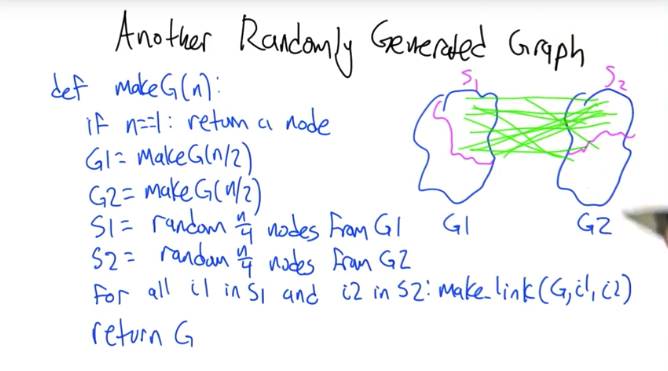 Another Randomly Generated Graph
def makeG(n):
if n==1: return a node
G1= makeG(n/2)
G2= makeG(n/2)
S1= random n/4 nodes from G1
S2= random n/4 nodes from G2
for all i1 in S1 and i2 in S2: make_link(G,i1,i2)
return G
S1
S2
G1
G2